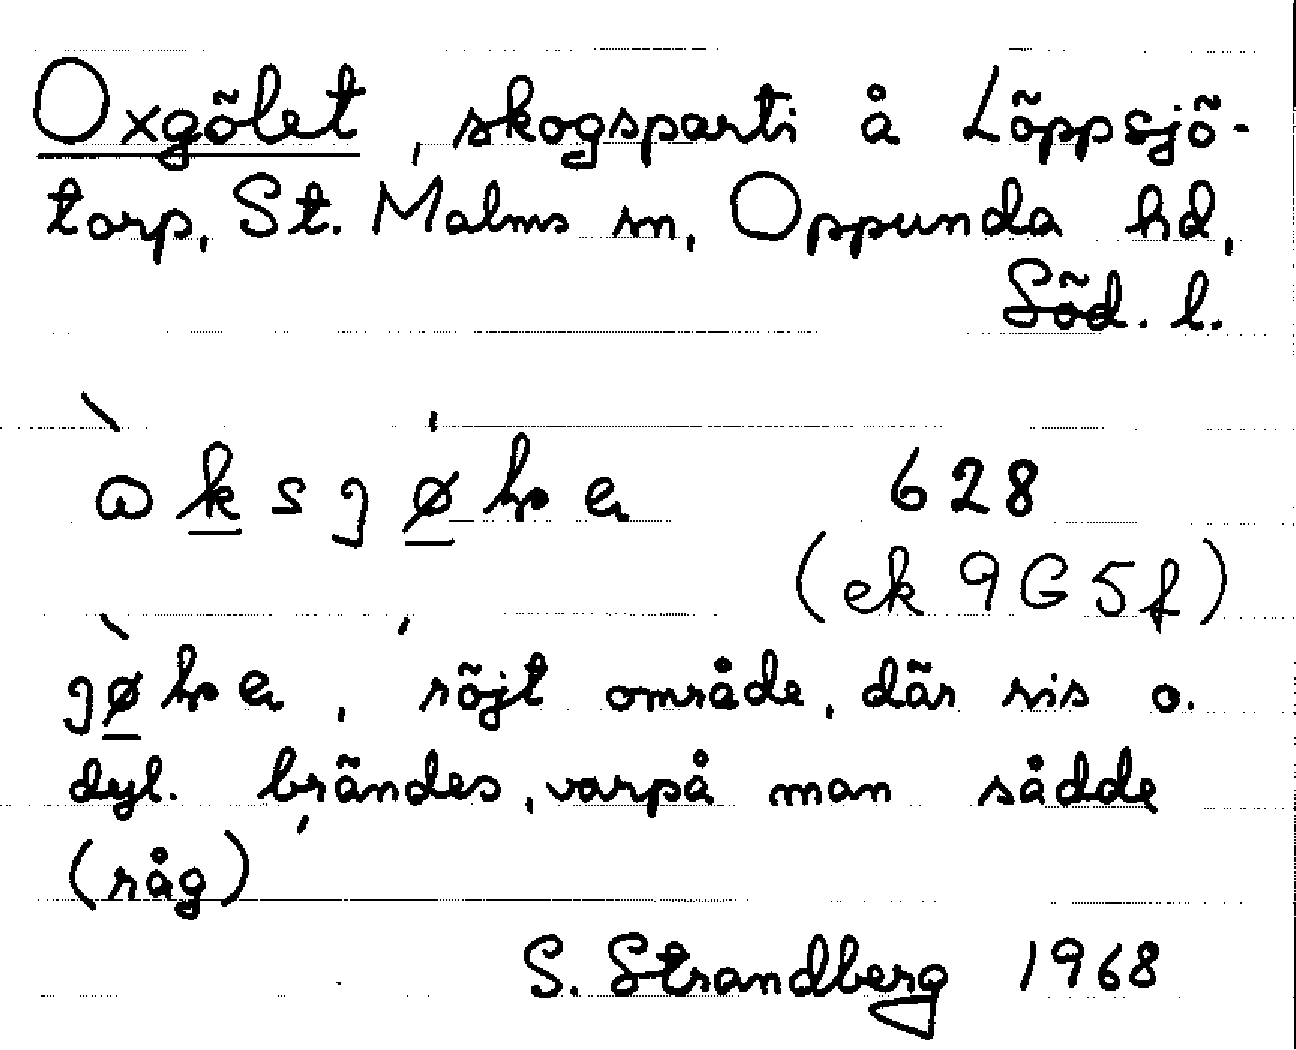 Oxgölet, skogsparti å Löppsjö-
torp, St. Malms sn, Oppunda hd,
Söd. l.
628
(ek 9G5f)
, röjt område, där ris o.
dyl. brändes, varpå man sådde
(råg)
S. Strandberg 1968